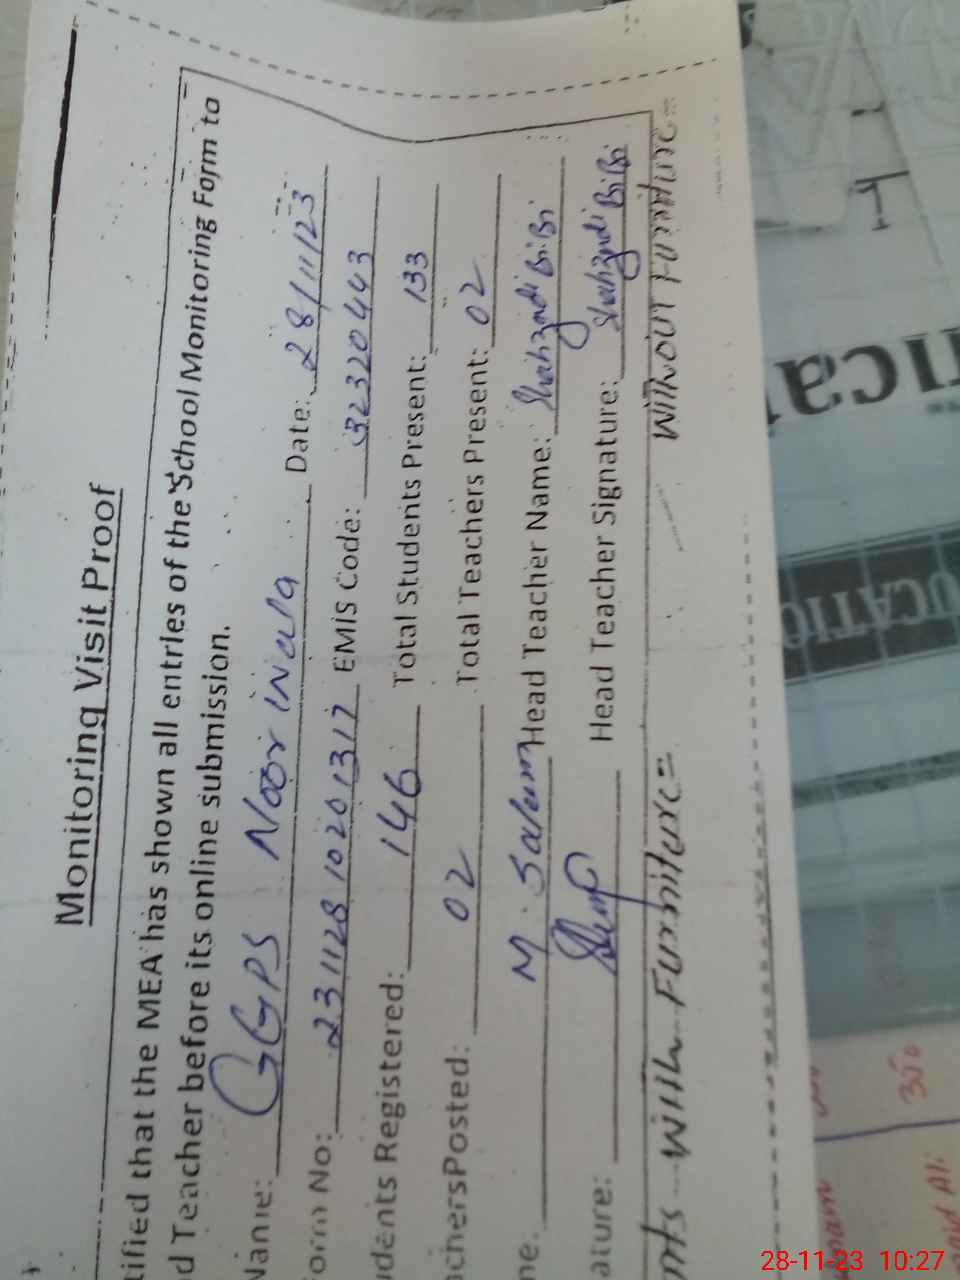 Monitoring Visit Proof
tified that the MEA has shown all entries of the School Monitoring Form to
d Teacher before its online submission.
Name: GGPS Noor Wala Date: 28/11/23
orm No: 23112810201317 EMIS Code: 32320443
udents Registered: 146 Total Students Present: 133
achersPosted: 02 Total Teachers Present: 02
me: M. Saleem Head Teacher Name: Shahzadi BiBi
ature: Head Teacher Signature: Shahzadi BiBi
nts with Furniture= without Furniture=
ical
UCATIO
350
28-11-23 10:27